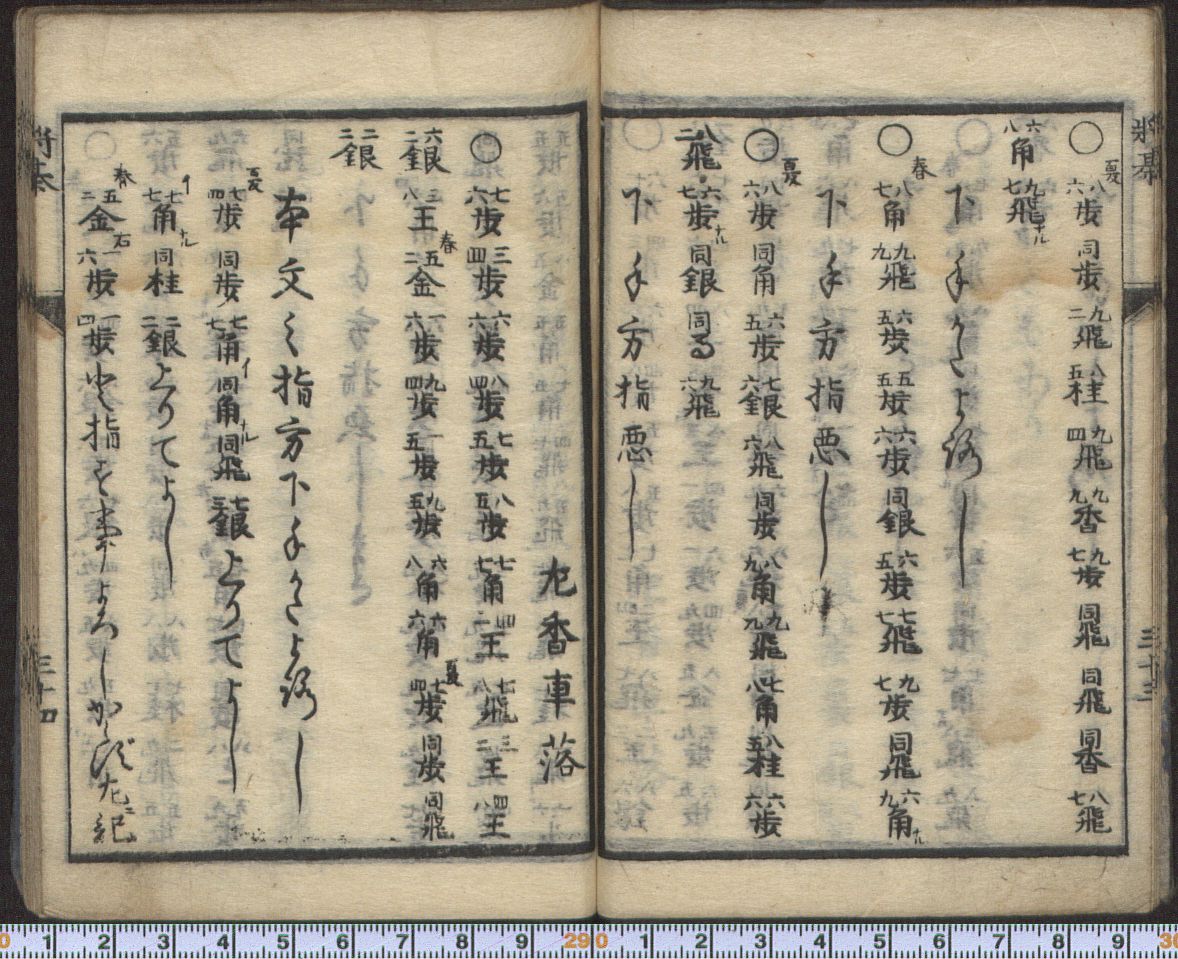 将棊
三十三
○
夏
八六歩 同歩 九二飛 八五桂 九四飛 九九香 九七歩 同飛 同飛 同香 八七飛
六八角 九七飛ナル
下手かたよろし
○
春
八七角 九九飛 六五歩 五五歩 六六歩 同銀 六五歩 七七飛 九七歩 同飛 六九角ナル
下手方指悪し
○
夏
八六歩 同角 六五歩 七六銀 八六飛 同歩 八九角 九九飛 七八角 八五桂 六六歩
八二飛 六七歩ナル 同銀 同馬 九六飛
下手方指悪し
左香車落
○
七六歩 三四歩 六六歩 八四歩 七五歩 八五歩 七七角 四二王 七八飛 三二王 四八王
六二銀 三八王
春
五二金 一六歩 九四歩 一五歩 九五歩 六八角 六六角
夏
七四歩 同歩 同飛
二二銀
本文之指方下手かたよろし
夏
七四歩 同歩 七七角イ 同角ナル 同飛 七三銀上りてよし
イ
七七角ナル 同桂 二二銀上りてよし
春
五二金
右
一六歩 一四歩と指
左ニ記
三十四